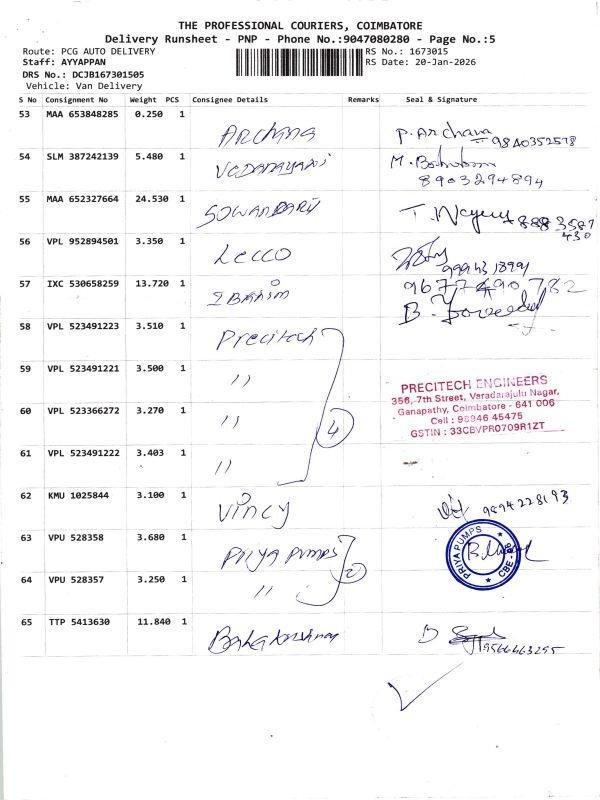 THE PROFESSIONAL COURIERS, COIMBATORE
Delivery Runsheet - PNP - Phone No.:9047080280 - Page No.:5
Route: PCG AUTO DELIVERY
RS No.: 1673015
Staff: AYYAPPAN
RS Date: 20-Jan-2026
DRS No.: DCJB167301505
Vehicle: Van Delivery
S No Consignment No Weight PCS Consignee Details Remarks Seal & Signature
53 MAA 653848285 0.250 1 Archana P. Archana 9840352578
54 SLM 387242139 5.480 1 M.
8903294894
55 MAA 652327664 24.530 1
56 VPL 952894501 3.350 1 Lecco
57 IXC 530658259 13.720 1 Ibrahim
58 VPL 523491223 3.510 1 Precitech
59 VPL 523491221 3.500 1 "
PRECITECH ENGINEERS
356, 7th Street, Varadarajulu Nagar,
Ganapathy, Coimbatore - 641 006
Cell : 98946 45475
GSTIN : 33CBVPR0709R1ZT
60 VPL 523366272 3.270 1 " 4
61 VPL 523491222 3.403 1 "
62 KMU 1025844 3.100 1 Vincy 9894228193
63 VPU 528358 3.680 1 Priya Pumps 2
PRIYA PUMPS CBE
64 VPU 528357 3.250 1 "
65 TTP 5413630 11.840 1 Balakrishnan
9566663295